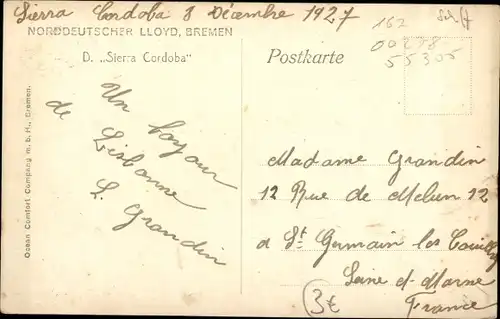 Sierra Cordoba 8 Décembre 1927
NORDDEUTSCHER LLOYD, BREMEN
D. „Sierra Cordoba"
Postkarte
162
55305
Un bonjour
de Lisbonne
L. Grandin
Madame Grandin
12 Rue de Melun 12
a St Germain les Couilly
Seine et Marne
France
3€
Ocean Comfort Company m. b. H., Bremen.